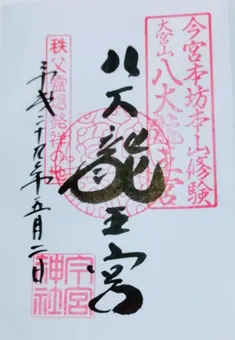 今宮本坊本山修験
大宮山
八大龍王宮
八大龍王宮
秩父霊場発祥の地
平成二十九年五月二日
今宮神社